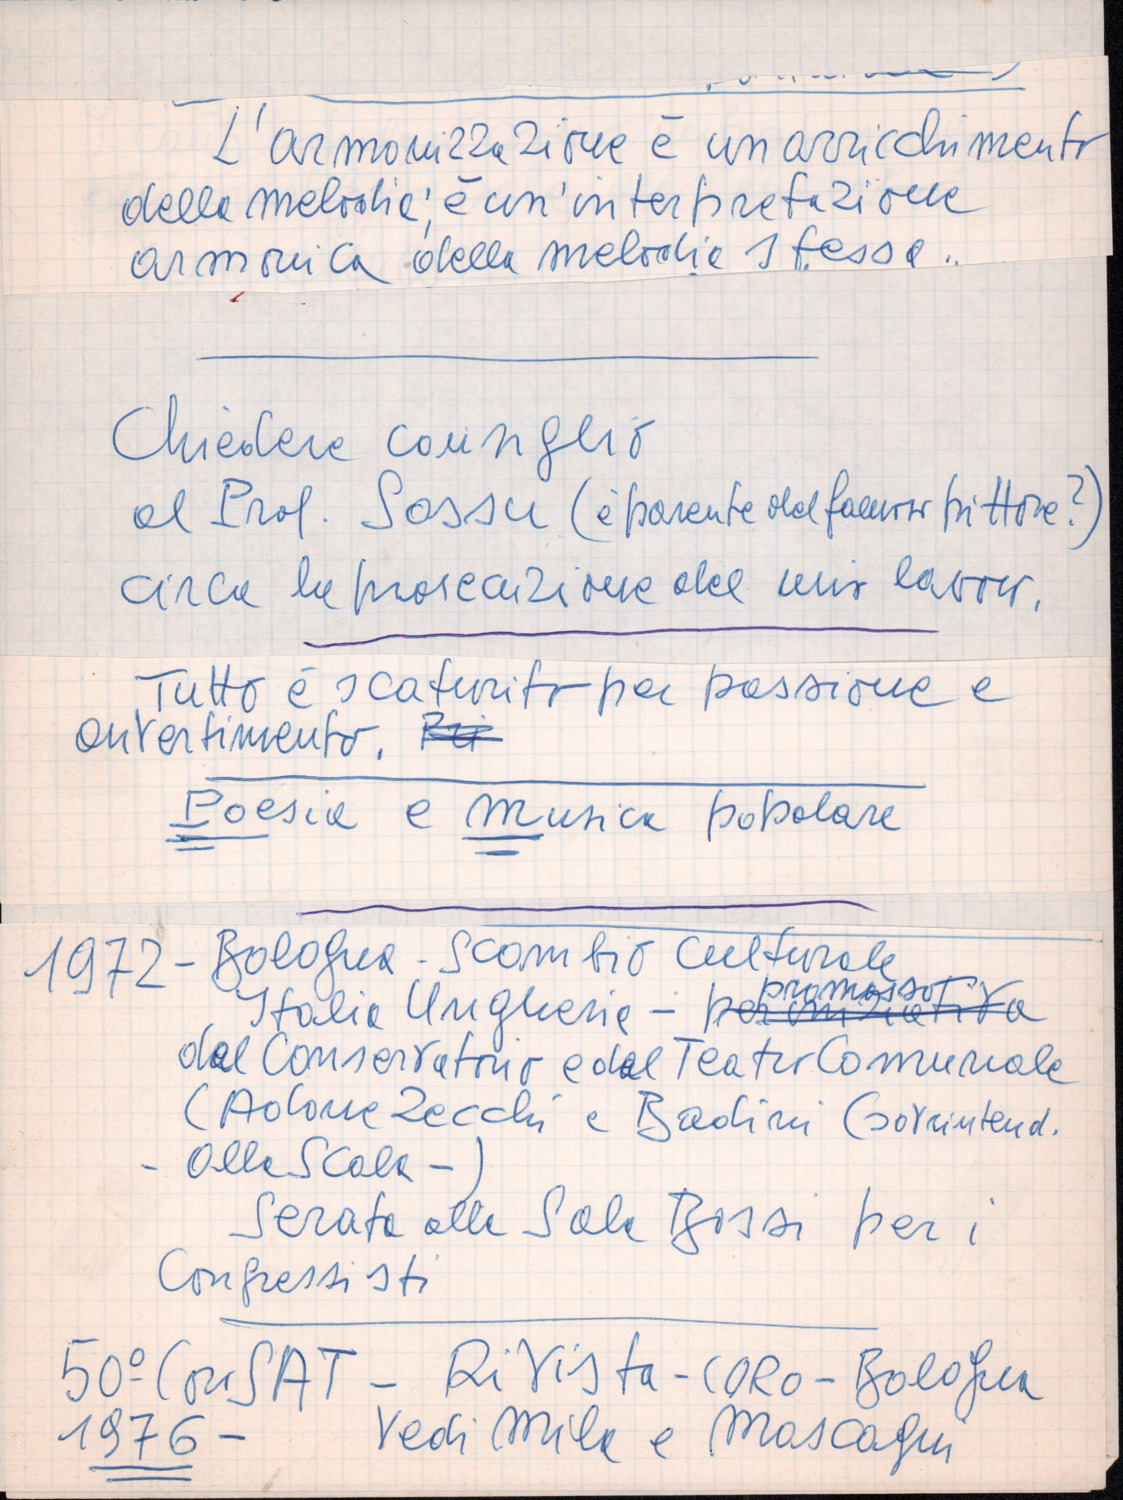 L'armonizzazione è un arricchimento
della melodia; è un'interpretazione
armonica della melodia stessa..
Chiedere consiglio
al Prof. Sassu (è parente del famoso pittore?)
circa la prosecuzione del mio lavoro.
Tutto è scaturito per passione e
divertimento.
Poesia e Musica popolare
1972 - Bologna - Scambio Culturale
promosso
Italia Ungheria - per iniziativa
dal Conservatorio e dal Teatro Comunale
(Adone Zecchi e Badini (sovrintend.
- alla Scala -)
Serata alla Sala Bossi per i
Congressisti
50º Coro SAT - Rivista - CORO - Bologna
1976 - Vedi Mila e Mascagni